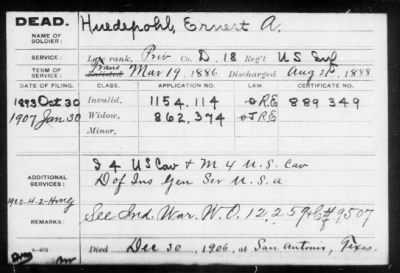 DEAD.
NAME OF SOLDIER:
Huedepohl, Ernest A.
SERVICE:
Late rank, Priv Co. D, 18 Reg't US Inf
TERM OF SERVICE:
Trans Enlisted Mar 19, 1886 Discharged Aug 1888
DATE OF FILING. CLASS. APPLICATION NO. LAW CERTIFICATE NO.
1893 Oct 30 Invalid, 1154.114 RE 889349
1907 Jan 30 Widow, 862,374 RE
Minor,
ADDITIONAL SERVICES:
I 4 US Cav + M 4 U.S. Cav
D of Ins Gen Ser U.S.A
REMARKS:
See Ind. War. W.O. 12,259 + C# 9,507
Died Dec 30, 1906, at San Antonio, Texas.